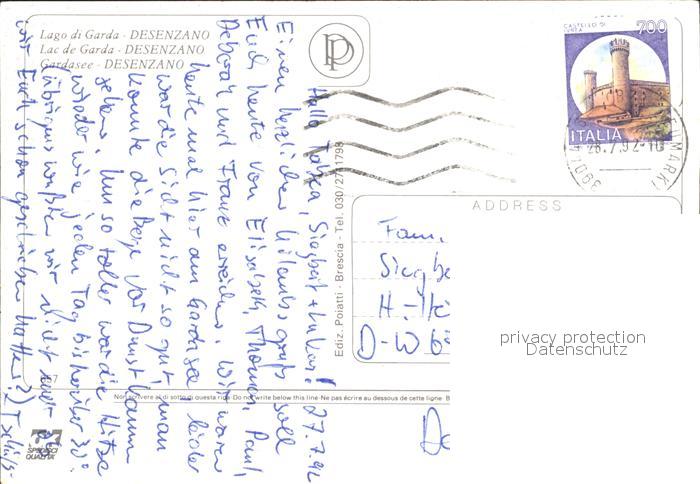 Lago di Garda - DESENZANO
Lac de Garda - DESENZANO
Gardasee - DESENZANO
Hallo Siegbert + Lukas! 27.7.92
Einen herzlichen Urlaubsgruß soll
Euch heute von Elisabeth, Thomas, Paul,
Deborah und Franz erreichen. Wir waren
heute mal hier am Gardasee leider
war die Sicht nicht so gut, man
konnte die Berge vor Dunst kaum
sehen. Um so toller war die Hitze
wieder wie jeden Tag bisher über 30°
(übrigens wußten wir nicht mehr ob
wir Euch schon geschrieben hatten?) Tschüß
Ediz. Poiatti - Brescia - Tel. 030/2731798
CASTELLO DI IVREA
700
ITALIA
28.7.92-10
ADDRESS
Fam.
Siegbe
D-W 6
privacy protection
Datenschutz
Non scrivere al di sotto di questa riga-Do not write below this line-Ne pas écrire au dessous de cette ligne B
SPEDISCI QUALITA'